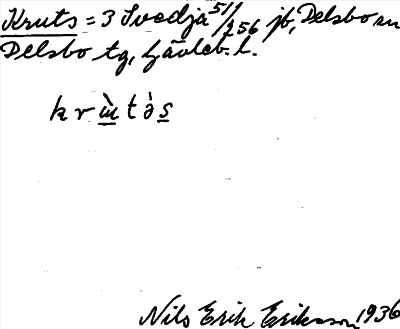 Kruts = 3 Svedja 51/256 jb, Delsbo sn
Delsbo tg, Gävleb. l.
krɯ̀tə̀s
Nils Erik Eriksson 1936